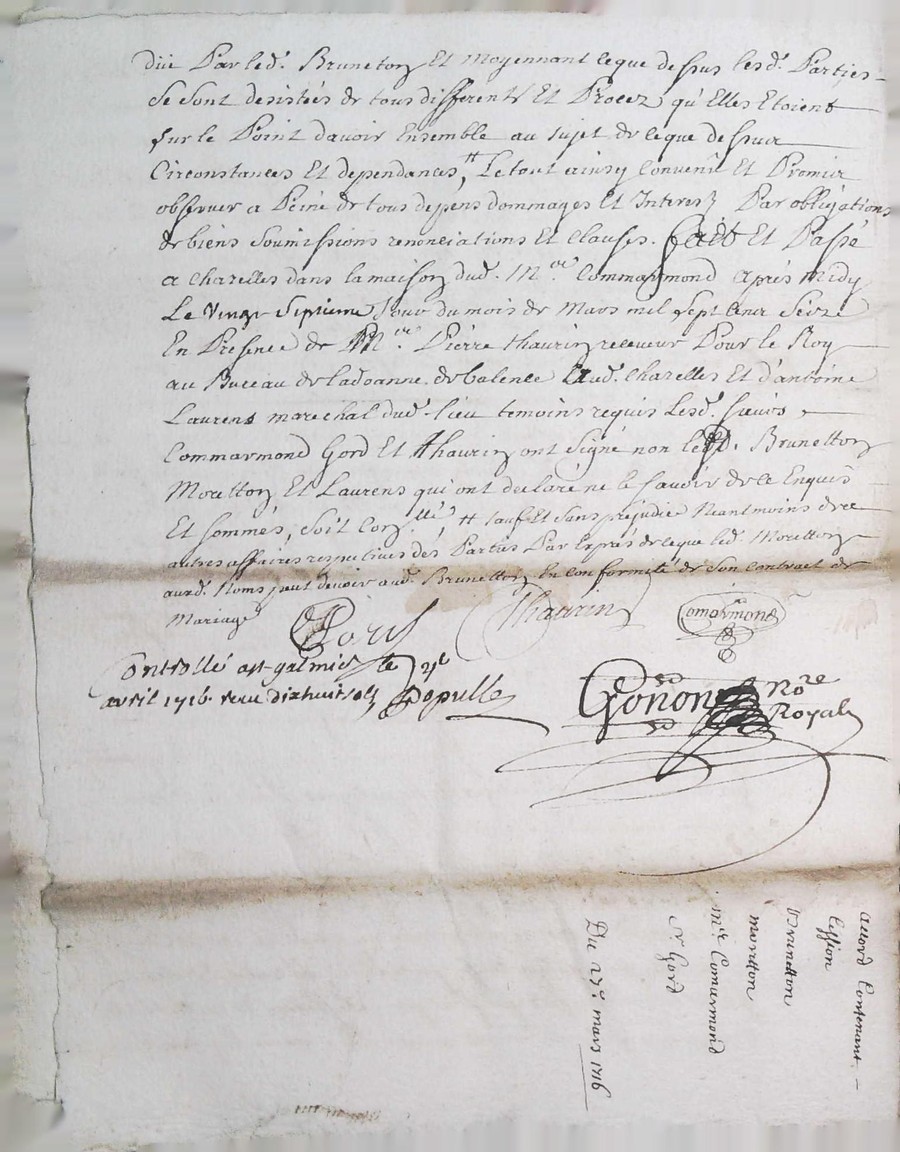 düe Par led. Bruneton Et Moyennant ceque dessus lesd. Parties
se sont desistés de tous differents Et Procez qu'Elles Etoient
sur le Point davoir Ensemble au sujet de ceque dessus
Circonstances Et dependances, # Le tout ainsy convenu Et Promis
observer a Peine de tous depens dommages Et Interest Par obligations
de biens soumissions renonciations Et clauses. fait Et Passé
a chazelles dans la maison dud. Me. Commarmond apres Midy
Le Vingt Septieme Jour du mois de Mars mil sept cent seize
En Presence de Me. Pierre thaurin receveur Pour le Roy
au Bureau de ladoanne de valence aud. chazelles Et d'antoine
Laurens marechal dud. lieu temoins requis Lesd. sieurs
Commarmond Gord Et thaurin ont Signé non led. Brunetton
Moretton Et Laurens qui ont declaré ne le savoir de ce Enquis
Et sommés, soit Con.llé # sauf Et sans prejudice Neantmoins de
autres affaires respectives des Parties Par Exprés de ceque led. Moretton
aud. Noms peut devoir aud. Brunetton En conformité de son contract de
Mariage
Gord Thaurin Comarmond
Controllé a st galmier le
avril 1716. receu dixhuit sols Populle
Gonon Nore
Royal
accord Contenant
cession
Brunetton
moretton
mre Comarmond
Sr Gord
Du 27e mars 1716